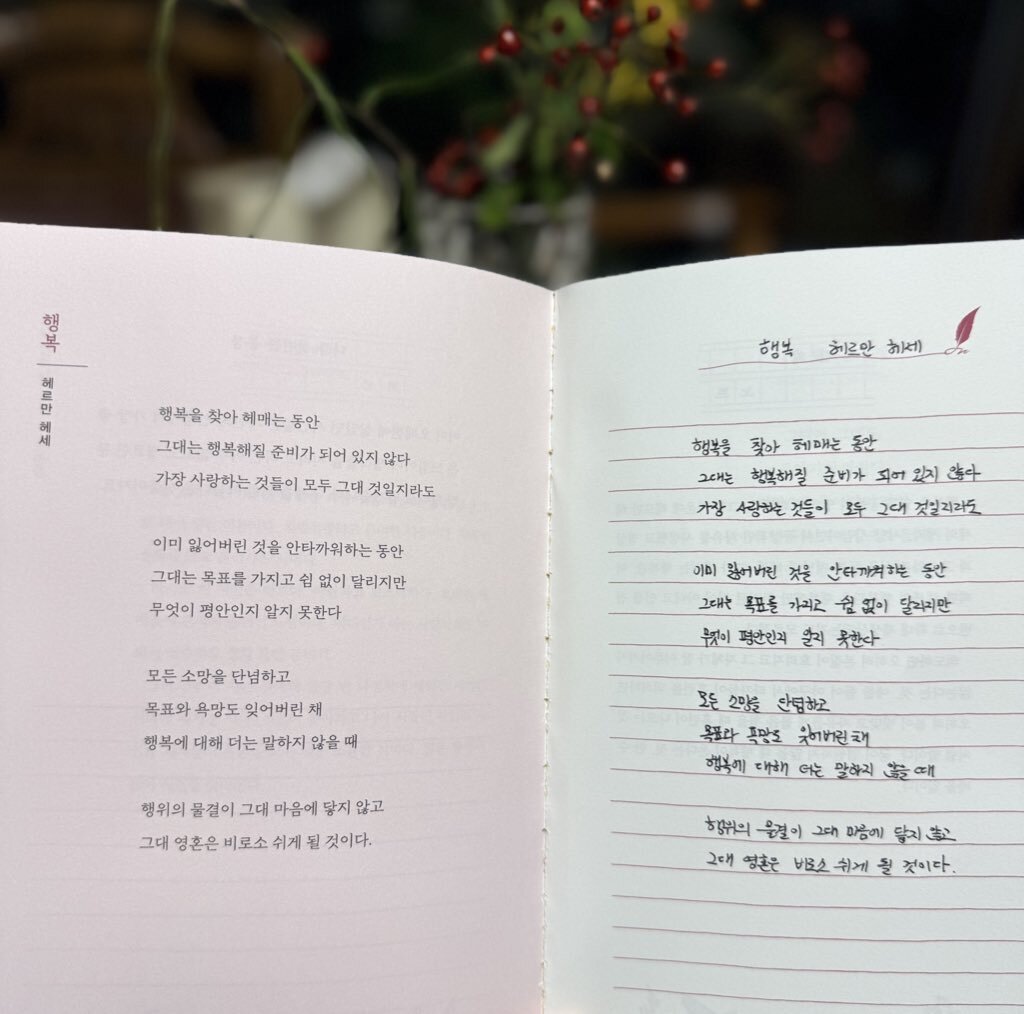 행복
헤르만 헤세
행복을 찾아 헤매는 동안
그대는 행복해질 준비가 되어 있지 않다
가장 사랑하는 것들이 모두 그대 것일지라도
이미 잃어버린 것을 안타까워하는 동안
그대는 목표를 가지고 쉼 없이 달리지만
무엇이 평안인지 알지 못한다
모든 소망을 단념하고
목표와 욕망도 잊어버린 채
행복에 대해 더는 말하지 않을 때
행위의 물결이 그대 마음에 닿지 않고
그대 영혼은 비로소 쉬게 될 것이다.
행복 헤르만 헤세
행복을 찾아 헤매는 동안
그대는 행복해질 준비가 되어 있지 않다
가장 사랑하는 것들이 모두 그대 것일지라도
이미 잃어버린 것을 안타까워하는 동안
그대는 목표를 가지고 쉼 없이 달리지만
무엇이 평안인지 알지 못한다
모든 소망을 단념하고
목표와 욕망도 잊어버린 채
행복에 대해 더는 말하지 않을 때
행위의 물결이 그대 마음에 닿지 않고
그대 영혼은 비로소 쉬게 될 것이다.